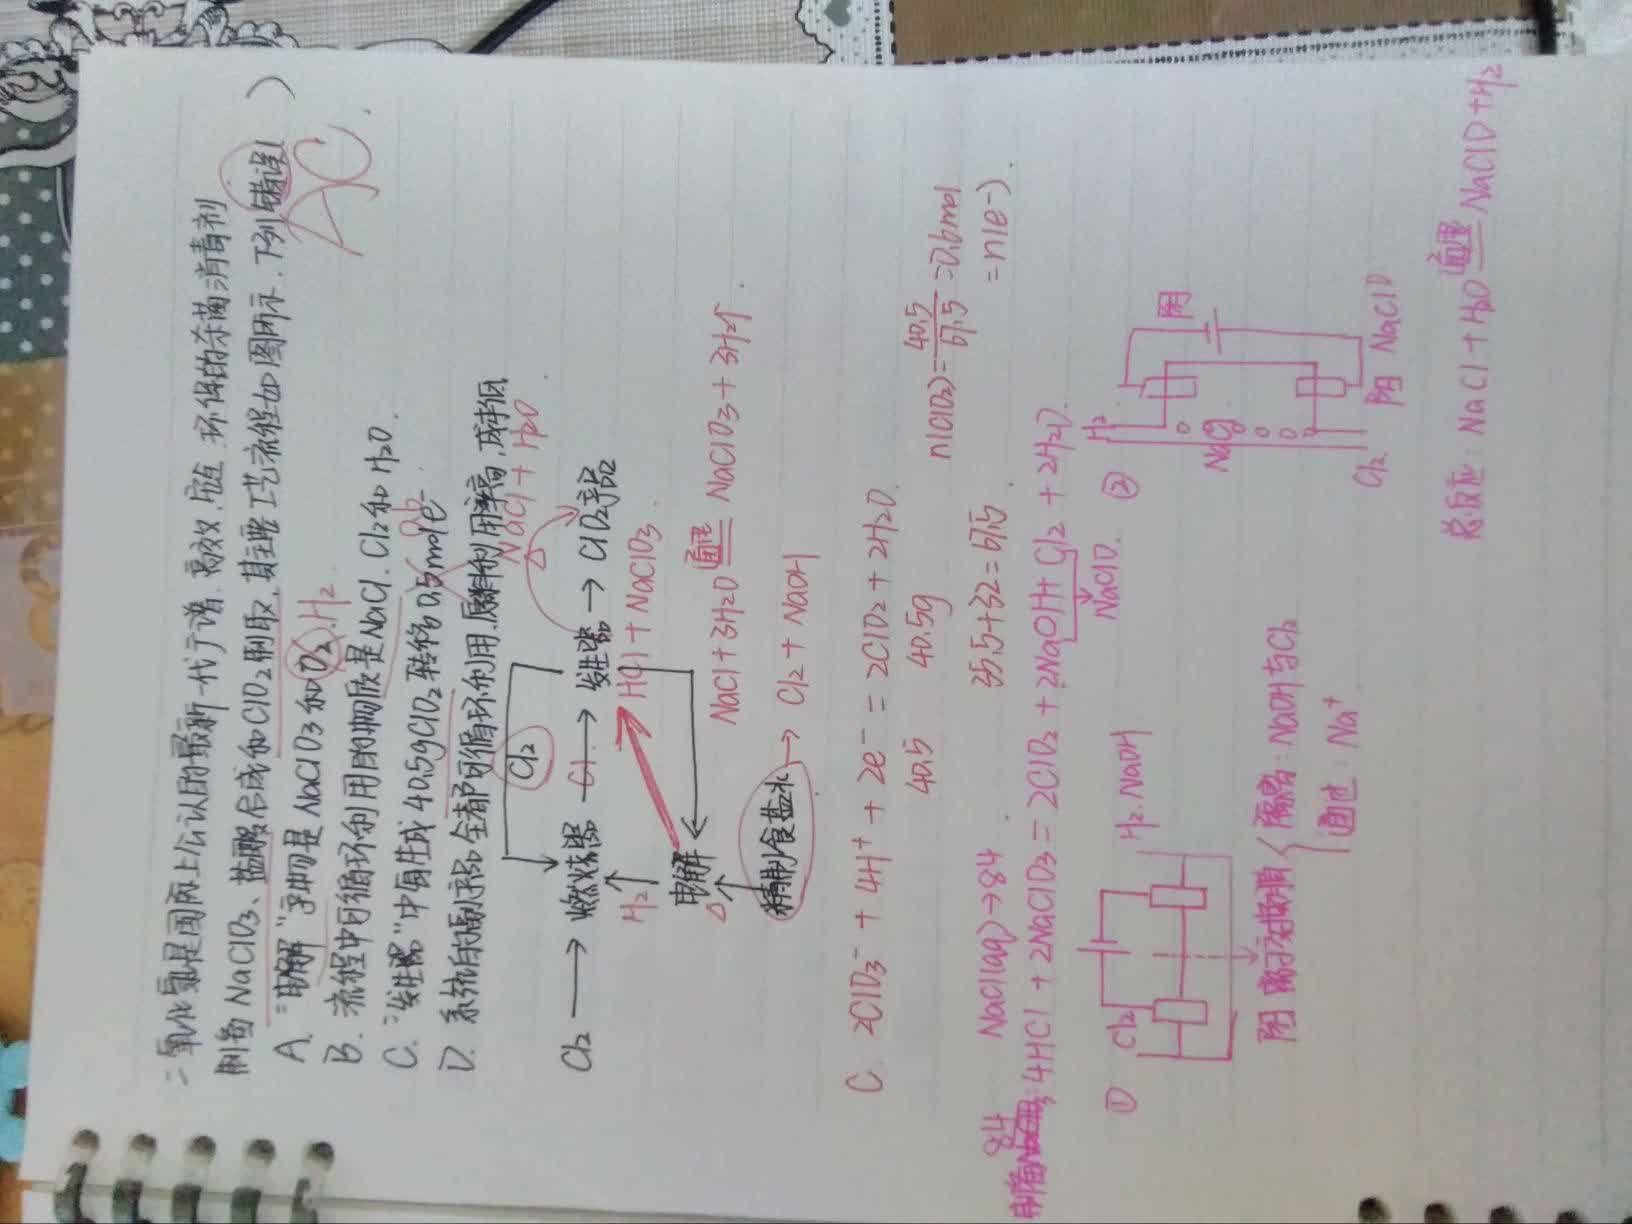 二氧化氯是国际上公认的最新一代广谱、高效、环保的杀菌消毒剂
制备NaClO3、盐酸合成和ClO2制取，其主要工艺流程如图所示，下列错误（ ）
AC
A. "电解"产物是NaClO3和O2 H2
B. 流程中可循环利用的物质是NaCl、Cl2和H2O.
C. "发生器"中每生成40.5gClO2转移0.5mole-
D. 系统的副产品全部可循环利用，原料利用率高，成本低
NaCl + H2O
Cl2
Cl2 → 燃烧器 → 发生器 → ClO2产品
H2
HCl + NaClO3
电解
NaCl + 3H2O 通电 NaClO3 + 3H2↑.
精制食盐水 → Cl2 + NaOH
C. 2ClO3- + 4H+ + 2e- = 2ClO2 + 2H2O
40.5 40.5g
n(ClO2) = 40.5/67.5 = 0.6mol
= n(e-).
35.5+32=67.5
NaCl(aq)→84
制备 84: 4HCl + 2NaClO3 = 2ClO2 + 2NaOH + Cl2 + 2H2O.
NaClO.
① Cl2 H2. NaOH
阳离子交换膜 隔离: NaOH与Cl2
通过: Na+
② H2 阴
NaCl
Cl2 阳 NaClO
总反应: NaCl + H2O 通电 NaClO + H2